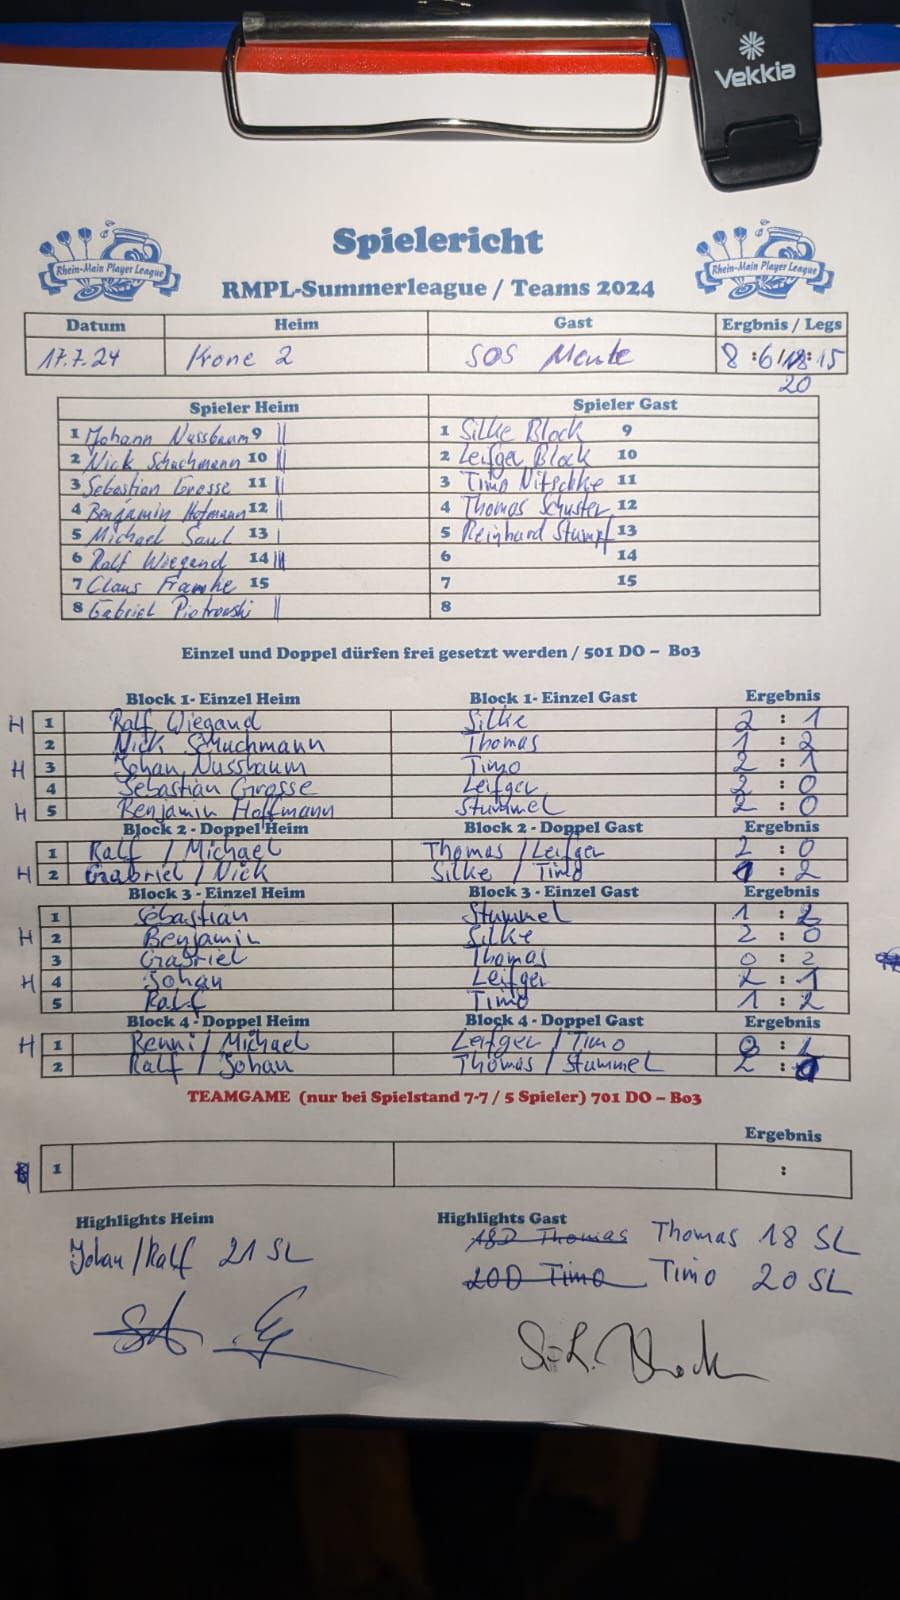 Vekkia
Spielericht
Rhein-Main Player League
Rhein-Main Player League
RMPL-Summerleague / Teams 2024
Datum Heim Gast Ergbnis / Legs
17.7.24 Krone 2 SOS Meute 8 : 6 / : 15
20
Spieler Heim Spieler Gast
1 Johann Nussbaum 9 || 1 Silke Block 9
2 Nick Schuchmann 10 || 2 Leifger Block 10
3 Sebastian Grosse 11 || 3 Timo Nitschke 11
4 Benjamin Hofmann 12 || 4 Thomas Schuster 12
5 Michael Saul 13 | 5 Reinhard Stumpf 13
6 Ralf Wiegand 14 6 14
7 Claus Framke 15 7 15
8 Gabriel Piotrowski || 8
Einzel und Doppel dürfen frei gesetzt werden / 501 DO – Bo3
Block 1- Einzel Heim Block 1- Einzel Gast Ergebnis
H 1 Ralf Wiegand Silke 2 : 1
2 Nick Schuchmann Thomas 1 : 2
H 3 Johan Nussbaum Timo 2 : 1
4 Sebastian Grosse Leifger 2 : 0
H 5 Benjamin Hoffmann Stummel 2 : 0
Block 2 - Doppel Heim Block 2 - Doppel Gast Ergebnis
1 Ralf / Michael Thomas / Leifger 2 : 0
H 2 Gabriel / Nick Silke / Timo 1 : 2
Block 3 - Einzel Heim Block 3 - Einzel Gast Ergebnis
1 Sebastian Stummel 1 : 2
H 2 Benjamin Silke 2 : 0
3 Gabriel Thomas 0 : 2
H 4 Johan Leifger 2 : 1
5 Ralf Timo 1 : 2
Block 4 - Doppel Heim Block 4 - Doppel Gast Ergebnis
H 1 Benni / Michael Leifger / Timo 0 : 2
2 Ralf / Johan Thomas / Stummel 2 :
TEAMGAME (nur bei Spielstand 7-7 / 5 Spieler) 701 DO – Bo3
Ergebnis
1 :
Highlights Heim Highlights Gast
Johan / Ralf 21 SL 18D Thomas Thomas 18 SL
20D Timo Timo 20 SL